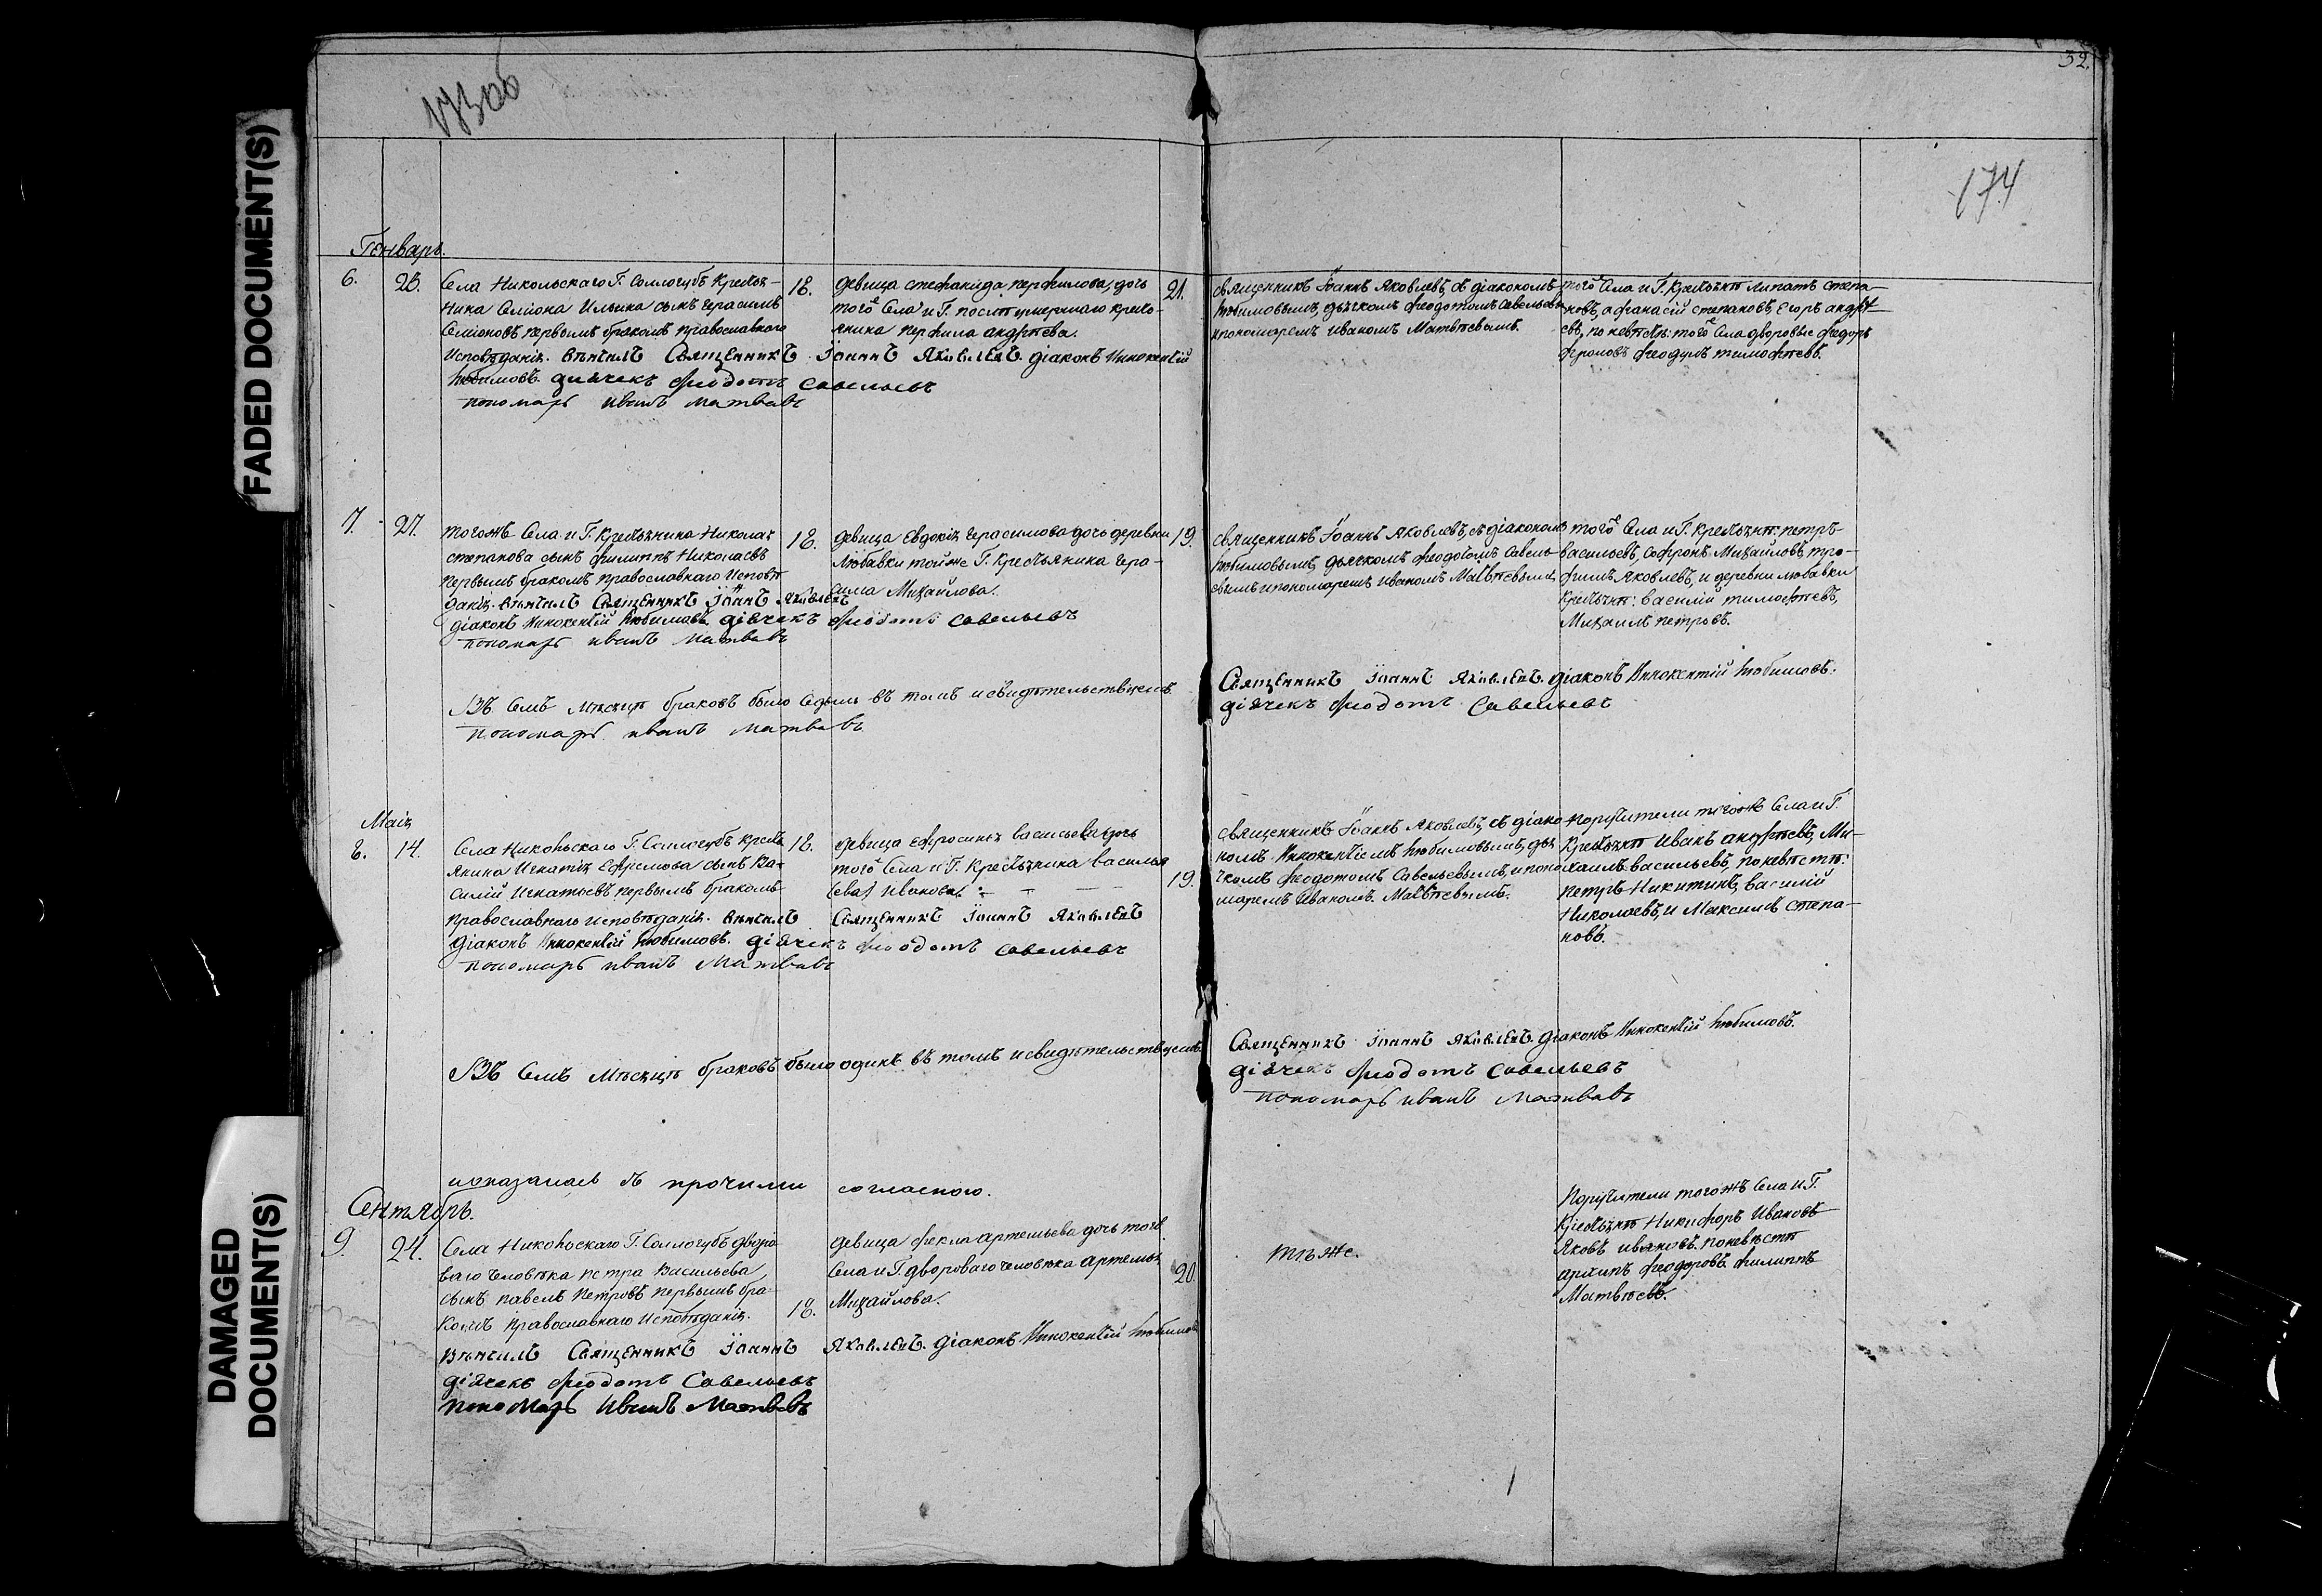 FADED DOCUMENT(S)
DAMAGED
DOCUMENT(S)
173об
32.
174
Генварь.
6.
26.
Села Никольскаго Г. Соллогубъ Кресть-
янина Семіона Ильина сынъ Герасимъ
Семіоновъ первымъ бракомъ православнаго
Исповѣданія. вѣнчалъ Священникъ Іоаннъ Яковлевъ. діаконъ Иннокентій
Любимовъ. діячекъ Феодотъ Савельевъ
пономарь иванъ матвѣвъ
18.
девица стефанида перфилова, дочь
тогоже Села и Г. после умершаго кресть-
янина перфила андрѣева.
21.
священникъ Іоаннъ Яковлевъ, съ діакономъ
Любимовымъ, дьячкомъ феодотомъ Савельевы
и пономаремъ иваномъ Матвѣевымъ.
того Села и Г. Крестьянѣ Липатъ степа-
новъ, афанасій степановъ, Егоръ андрѣ-
евъ, по невѣстѣ: тогоже Села дворовые федоръ
феодулъ тимофѣевъ.
7.
27.
тогожъ Села и Г. Крестьянина Николая
степанова сынъ филиппъ Николаевъ
первымъ бракомъ православнаго Исповѣ
данія. вѣнчалъ Священникъ Іоаннъ Яковлевъ
діаконъ Иннокентій Любимовъ. діячекъ Феодотъ Савельевъ
пономарь иванъ матвѣвъ
18.
девица Евдокія Герасимова дочь деревни
Любавки той же Г. Крестьянина Гера-
сима Михайлова.
19.
священникъ Іоаннъ Яковлевъ, съ діакономъ
Любимовымъ, дьячкомъ феодотомъ Савель-
евымъ и пономаремъ иваномъ Матвѣевымъ
того Села и Г. Крестьянѣ: петръ
васильевъ, Софронъ Михайловъ, тро-
фимъ Яковлевъ, и деревни любавки
Крестьянѣ: василій тимофѣевъ,
Михаилъ петровъ.
Въ Семъ Мѣсяцѣ браковъ было Седмь въ томъ и свидѣтельствуемъ
Священникъ Іоаннъ Яковлевъ. діаконъ Иннокентій Любимовъ.
діячекъ Феодотъ Савельевъ
пономарь иванъ матвѣвъ
Маія
8.
14.
Села Никольскаго Г. Соллогубъ кресть
янина Игнатія Ефремова сынъ Ва-
силій Игнатьевъ, первымъ бракомъ
Православнаго исповѣданія. вѣнчалъ Священникъ Іоаннъ Яковлевъ
діаконъ Иннокентій Любимовъ. діячекъ Феодотъ Савельевъ
пономарь иванъ Матвѣвъ
18.
девица Ефросинья васильева дочь
того Села и Г. Крестьянина василья
Иванова.
19.
священникъ Іоаннъ Яковлевъ, съ діако
номъ Иннокентіемъ Любимовымъ, дья
чкомъ феодотомъ Савельевымъ, и поно
маремъ Иваномъ Матвѣевымъ.
поручители тогожъ Села и Г.
Крестьянѣ Иванъ андрѣевъ, Ми-
хаилъ васильевъ, по невѣстѣ:
Петръ Никитинъ, василій
Николаевъ, и Максимъ степа-
новъ.
Въ Семъ Мѣсяцѣ браковъ было одинъ въ томъ и свидѣтельствуемъ
Священникъ Іоаннъ Яковлевъ. діаконъ Иннокентій Любимовъ.
діячекъ Феодотъ Савельевъ
пономарь иванъ матвѣвъ
показалась съ прочими согласною.
Сентябрь.
9.
24.
Села Никольскаго Г. Соллогубъ дворо
ваго человѣка петра Васильева
сынъ павелъ Петровъ первымъ бра-
комъ православнаго Исповѣданія.
вѣнчалъ Священникъ Іоаннъ Яковлевъ. діаконъ Иннокентій Любимовъ
діячекъ Феодотъ Савельевъ
пономарь Иванъ Матвѣвъ
18.
девица фекла артемьева дочь тогоже
Села и Г. двороваго человѣка артемья
Михайлова.
20.
тѣже.
Поручители тогожъ Села и Г.
Крестьянѣ Никифоръ Ивановъ
Яковъ ивановъ. по невѣстѣ
архипъ феодоровъ филиппъ
Матвѣевъ.